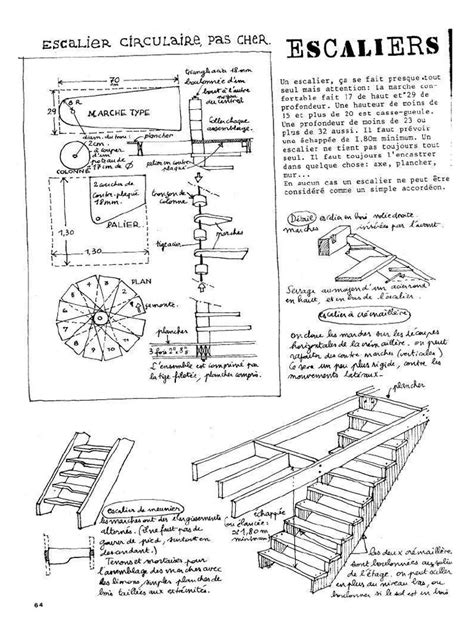 ESCALIER CIRCULAIRE, PAS CHER.
ESCALIERS
Un escalier, ça se fait presque tout
seul mais attention: la marche con-
fortable fait 17 de haut et 29 de
profondeur. Une hauteur de moins de
15 et plus de 20 est casse-gueule.
Une profondeur de moins de 23 ou
plus de 32 aussi. Il faut prévoir
une échappée de 1,80m minimum. Un
escalier ne tient pas toujours tout
seul. Il faut toujours l'encastrer
dans quelque chose: axe, plancher,
mur...
En aucun cas un escalier ne peut être
considéré comme un simple accordéon.
70
29
R
MARCHE TYPE
COLONNE
plancher
2 couches de
contre-plaqué
18mm.
PALIER
1,30
1,30
colonne
marches
PLAN
remonte
plancher
3 fois
L'ensemble est comprimé par
la tige filetée, plancher compris.
Détail escalier en bois
marches
Serrage au moyen d'un
en haut, et en bas de l'escalier.
escalier à crémaillère
On cloue les marches sur les découpes
horizontales de la crémaillère. on peut
rajouter des contre marches (verticales)
Ce sera un peu plus rigide, contre les
mouvements latéraux.
plancher
escalier de meunier
les marches ont des élargissements
alternés. (il ne faut pas se
gourer de pied, surtout en
descendant.)
Tenons et mortaises pour
l'assemblage des marches avec
les limons, simples planches de
bois taillées aux extrémités.
échappée
1,80m
minimum
Les deux crémaillères
sont boulonnées au solivage
de l'étage. on peut sceller
en plus du niveau bas, ou
boulonner si le sol est en bois
64